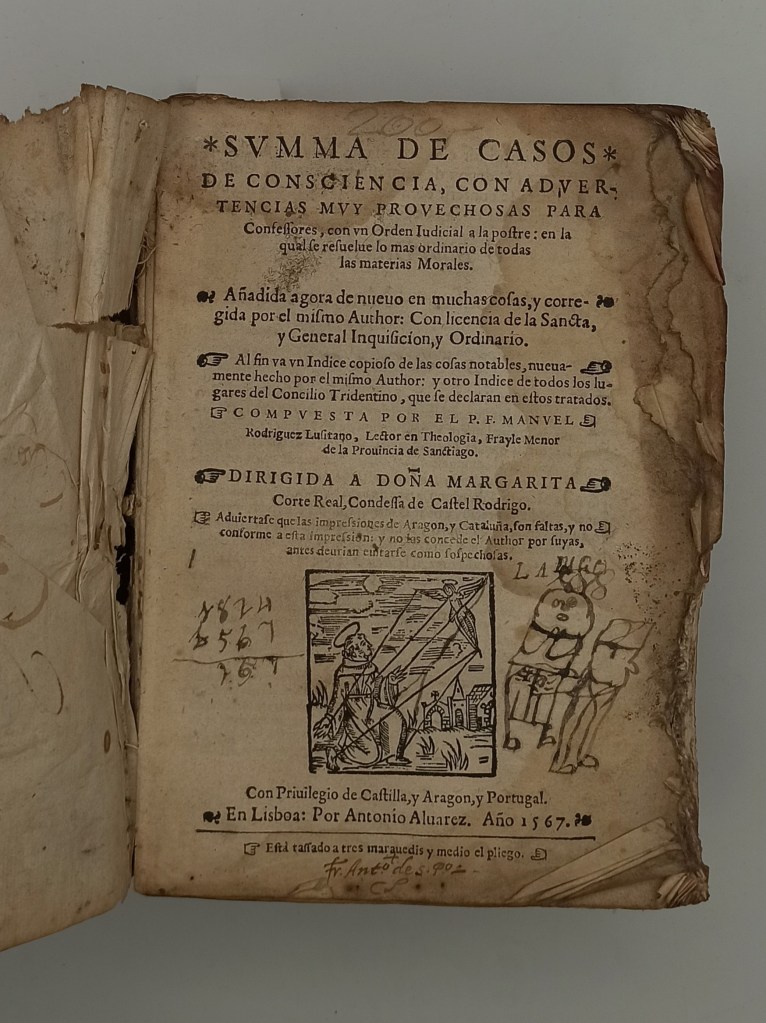 200
*SVMMA DE CASOS*
DE CONSCIENCIA, CON ADVER-
TENCIAS MVY PROVECHOSAS PARA
Confeſſores, con vn Orden Iudicial a la poſtre: en la
qual ſe reſuelue lo mas ordinario de todas
las materias Morales.
Añadida agora de nueuo en muchas coſas, y corre-
gida por el miſmo Author: Con licencia de la Sancta,
y General Inquiſicion, y Ordinario.
☞ Al fin va vn Indice copioſo de las coſas notables, nueua- ☜
mente hecho por el miſmo Author: y otro Indice de todos los lu-
gares del Concilio Tridentino, que ſe declaran en eſtos tratados.
☞ COMPVESTA POR EL P. F. MANVEL ☜
Rodriguez Luſitano, Lector en Theologia, Frayle Menor
de la Prouincia de Sanctiago.
☞ DIRIGIDA A DOÑA MARGARITA ☜
Corte Real, Condeſſa de Caſtel Rodrigo.
☞ Aduiertaſe que las impreſsiones de Aragon, y Cataluña, ſon faltas, y no ☜
conforme a eſta impreſsion: y no las concede el Author por ſuyas,
antes deurian euitarſe como ſoſpechoſas.
1824
1567
Con Priuilegio de Caſtilla, y Aragon, y Portugal.
En Lisboa: Por Antonio Aluarez. Año 1567.
☞ Eſtá taſſado a tres marauedis y medio el pliego. ☜
Fr. Antº de S.